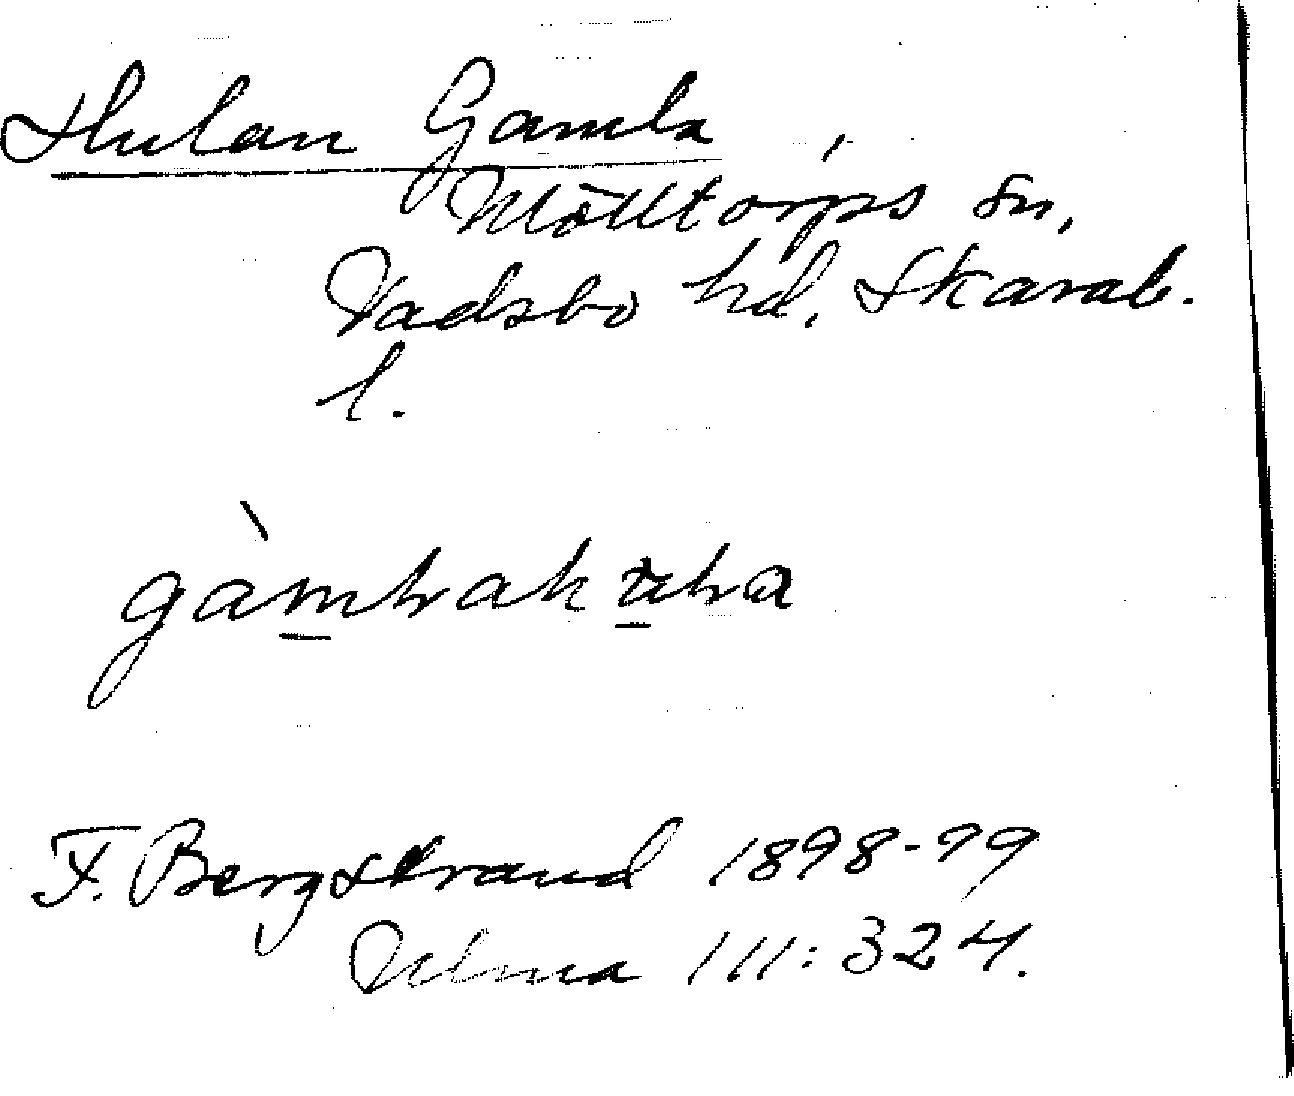 Hulan Gamla,
Mölltorps sn,
Vadsbo hd, Skarab.
l.
F. Bergstrand 1898-99
Ulma 111:324.